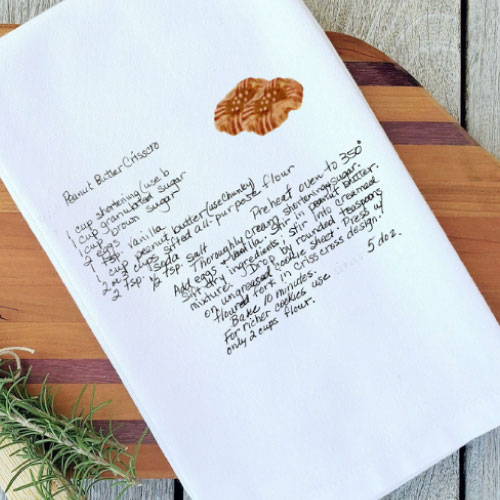 Peanut Butter Crisscro
1 cup shortening (use b
1 cup granulated sugar
1 cup brown sugar
2 eggs
1 tsp. vanilla
1 cup peanut butter (use chunky)
2 cups sifted all-purpose flour
2 tsp. soda
½ tsp. salt
Preheat oven to 350°
Thoroughly cream shortening, sugar.
Add eggs & vanilla. Stir in peanut butter.
Sift dry ingredients. Stir into creamed
mixture. Drop by rounded teaspoons
on ungreased cookie sheet. Press w/
floured fork in criss cross design.
Bake 10 minutes.
5 doz.
For richer cookies use
only 2 cups flour.